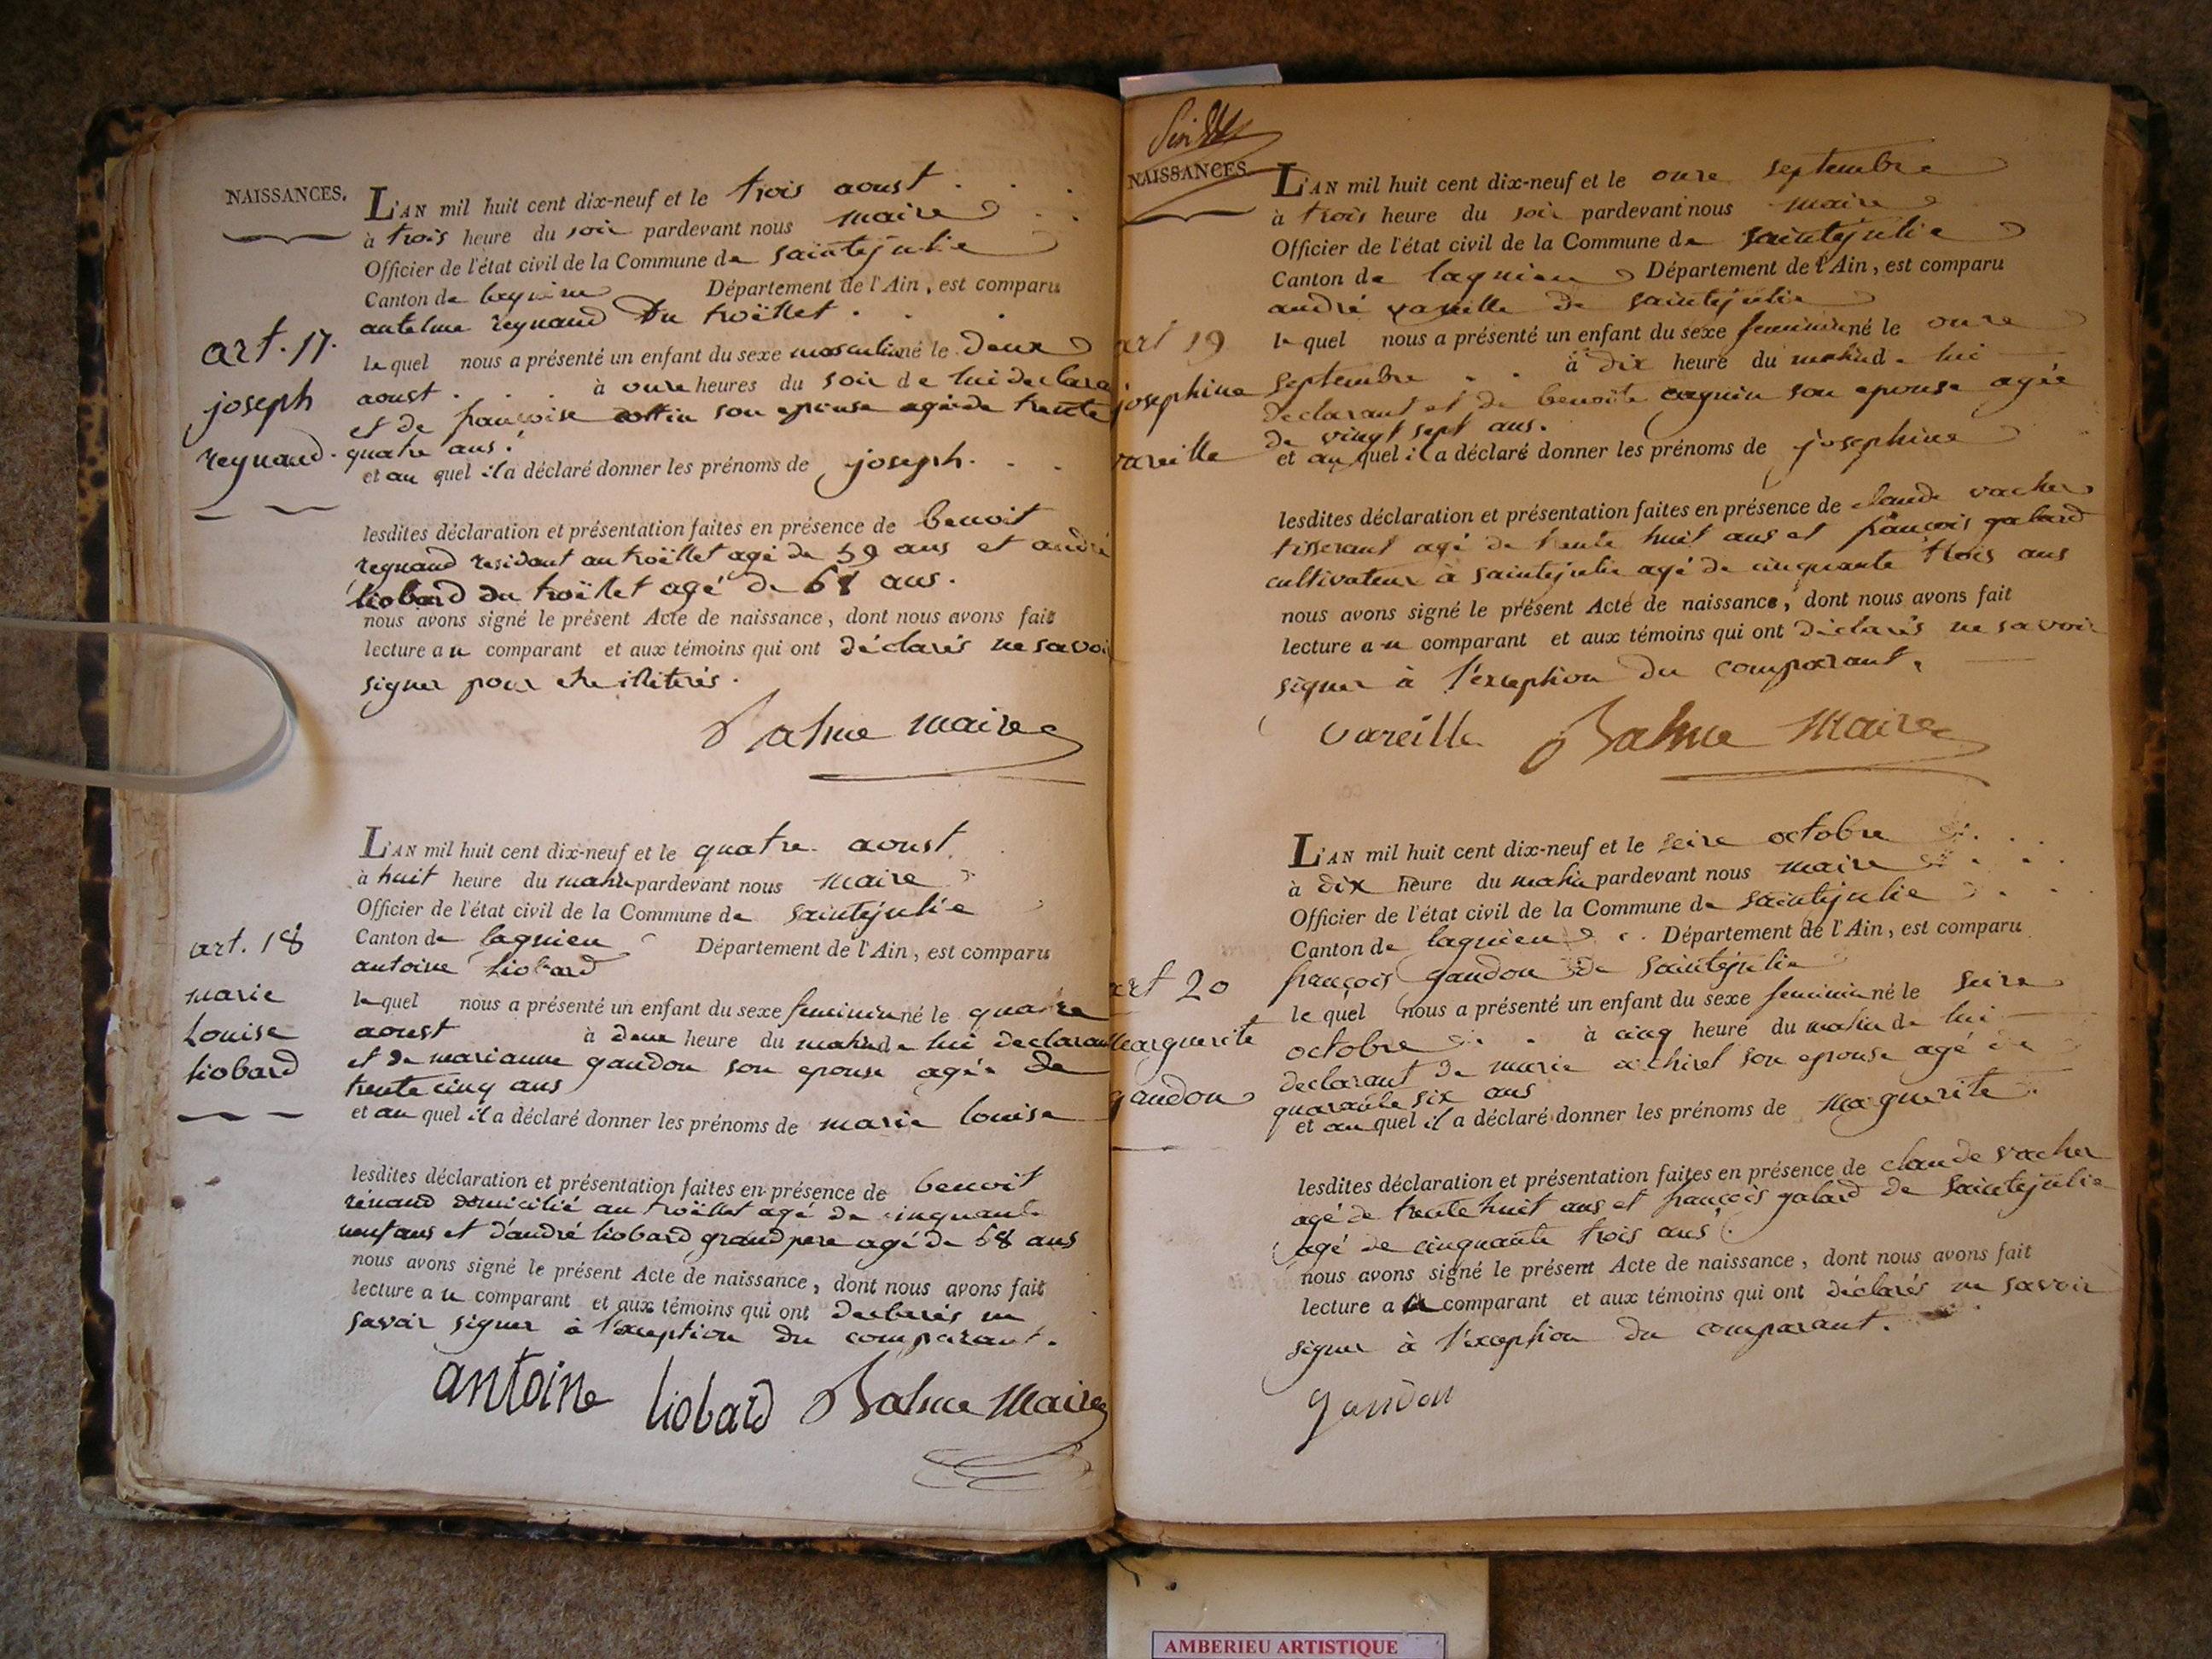 NAISSANCES.
L'AN mil huit cent dix-neuf et le trois aoust
à trois heure du soir pardevant nous maire
Officier de l'état civil de la Commune de saintejulie
Canton de lagnieu Département de l'Ain, est comparu
antelme reynaud Du troïllet
art. 17.
le quel nous a présenté un enfant du sexe masculin né le Deux
joseph
aoust à onze heures du soir de lui declara
et de francoise cottin son epouse agée de trente
reynaud.
quatre ans.
et au quel il a déclaré donner les prénoms de joseph.
lesdites déclaration et présentation faites en présence de benoit
reynaud residant au troïllet agé de 59 ans et andré
liobard du troïllet agé de 68 ans.
nous avons signé le présent Acte de naissance, dont nous avons fait
lecture au comparant et aux témoins qui ont déclarés ne savoir
signer pour etre illitérés.
Balme maire
L'AN mil huit cent dix-neuf et le quatre aoust
à huit heure du matin pardevant nous maire
Officier de l'état civil de la Commune de saintejulie
art. 18
Canton de lagnieu Département de l'Ain, est comparu
antoine liobard
marie
le quel nous a présenté un enfant du sexe feminin né le quatre
Louise
aoust à deux heure du matin de lui declarant
liobard
et de marianne gaudon son epouse agée de
trente cinq ans
et au quel il a déclaré donner les prénoms de marie louise
lesdites déclaration et présentation faites en présence de benoit
rénaud domicilié au troïllet agé de cinquante
neuf ans et d'andré liobard grand pere agé de 68 ans
nous avons signé le présent Acte de naissance, dont nous avons fait
lecture au comparant et aux témoins qui ont declarés ne
savoir signer à l'exception du comparant.
antoine liobard Balme Maire
NAISSANCES.
L'AN mil huit cent dix-neuf et le onze septembre
à trois heure du soir pardevant nous maire
Officier de l'état civil de la Commune de saintejulie
Canton de lagnieu Département de l'Ain, est comparu
andré vareille de saintejulie
art 19
le quel nous a présenté un enfant du sexe feminin né le onze
josephine
septembre à dix heure du matin de lui
declarant et de benoite cagnin son epouse agée
de vingt sept ans.
vareille
et au quel il a déclaré donner les prénoms de josephine
lesdites déclaration et présentation faites en présence de claude vacher
tisserant agé de trente huit ans et françois galard
cultivateur à saintejulie agé de cinquante trois ans
nous avons signé le présent Acte de naissance, dont nous avons fait
lecture au comparant et aux témoins qui ont déclarés ne savoir
signer à l'exception du comparant.
vareille Balme Maire
L'AN mil huit cent dix-neuf et le seize octobre
à dix heure du matin pardevant nous maire
Officier de l'état civil de la Commune de saintejulie
Canton de lagnieu Département de l'Ain, est comparu
françois gaudon de saintejulie
art 20
le quel nous a présenté un enfant du sexe feminin né le seize
Marguerite
octobre à cinq heure du matin de lui
declarant de marie son epouse agé de
gaudon
quarante six ans
et au quel il a déclaré donner les prénoms de marguerite.
lesdites déclaration et présentation faites en présence de claude vacher
agé de trente huit ans et françois galard de saintejulie
agé de cinquante trois ans.
nous avons signé le présent Acte de naissance, dont nous avons fait
lecture au comparant et aux témoins qui ont déclarés ne savoir
signer à l'exception du comparant.
gaudon
AMBERIEU ARTISTIQUE